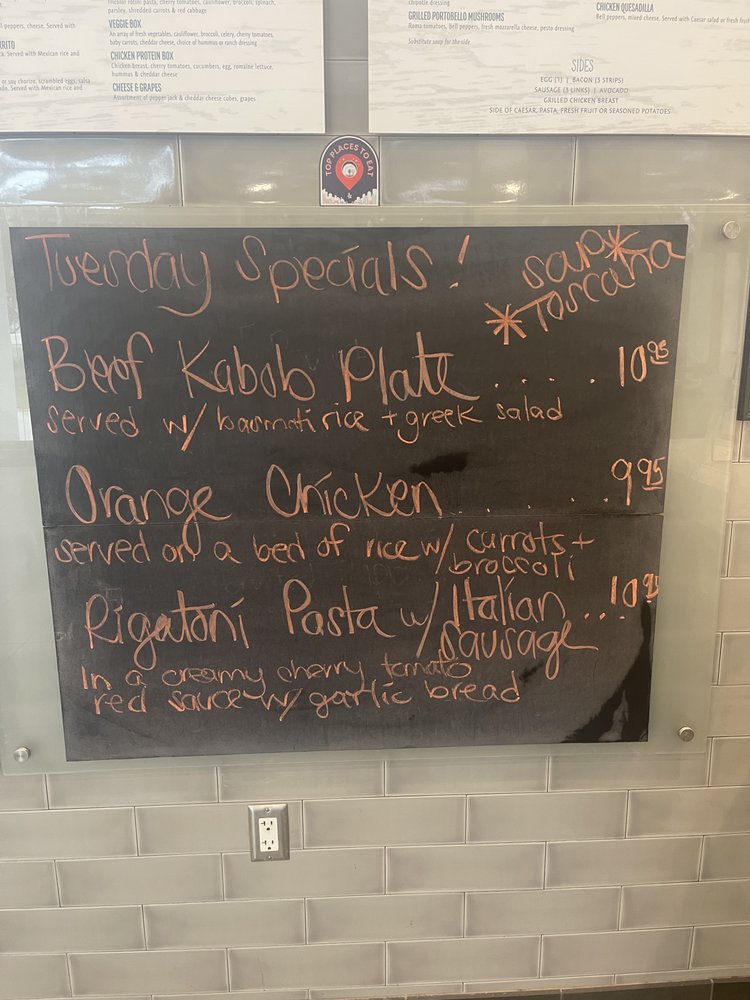 tricolor rotini pasta, cherry tomatoes, cauliflower, broccoli, spinach,
parsley, shredded carrots & red cabbage
VEGGIE BOX
An array of fresh vegetables, cauliflower, broccoli, celery, cherry tomatoes,
baby carrots, cheddar cheese, choice of hummus or ranch dressing
CHICKEN PROTEIN BOX
Chicken breast, cherry tomatoes, cucumbers, egg, romaine lettuce,
hummus & cheddar cheese
CHEESE & GRAPES
Assortment of pepper jack & cheddar cheese cubes, grapes
peppers, cheese. Served with
Served with Mexican rice and
or soy chorizo, scrambled eggs, salsa
Served with Mexican rice and
chipotle dressing
GRILLED PORTOBELLO MUSHROOMS
Roma tomatoes, bell peppers, fresh mozzarella cheese, pesto dressing
Substitute soup for the side
CHICKEN QUESADILLA
Bell peppers, mixed cheese. Served with Caesar salad or fresh fruit
SIDES
EGG (1) | BACON (3 STRIPS)
SAUSAGE (3 LINKS) | AVOCADO
GRILLED CHICKEN BREAST
SIDE OF CAESAR, PASTA, FRESH FRUIT OR SEASONED POTATOES
TOP PLACES TO EAT
Tuesday Specials!
soup*
*Toscana
Beef Kabob Plate ..... 10 95
served w/ basmati rice + greek salad
Orange Chicken ..... 9 95
served on a bed of rice w/ carrots +
broccoli
Rigatoni Pasta w/ Italian ... 10 95
sausage
In a creamy cherry tomato
red sauce w/ garlic bread